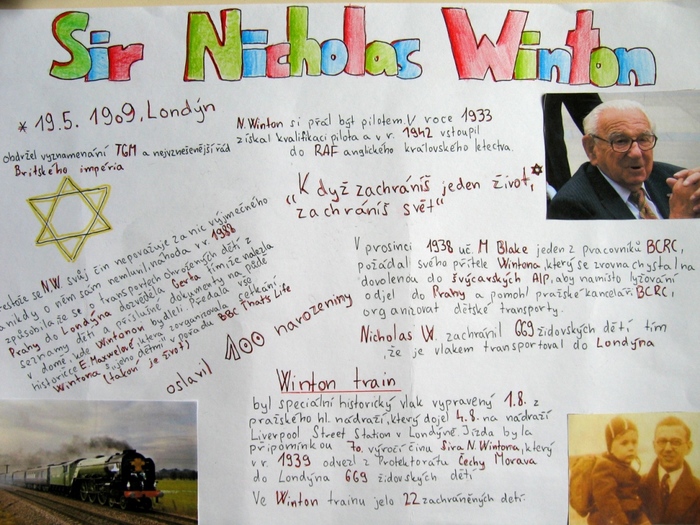 Sir Nicholas Winton
* 19.5. 1909, Londýn
obdržel vyznamenání TGM a nejvznešenější řád
Britského impéria
N. Winton si přál být pilotem. V roce 1933
získal kvalifikaci pilota a v r. 1942 vstoupil
do RAF anglického královského letectva.
"Když zachráníš jeden život,
zachráníš svět"
Přestože se N.W. svůj čin nepovažuje za nic výjimečného
a nikdy o něm sám nemluvil, náhoda v r. 1988
způsobila, že se o transportech ohrožených dětí z
Prahy do Londýna dozvěděla Gerta tím, že nalezla
seznamy dětí a příslušné dokumenty na půdě
v domě, kde Wintonovi bydleli. Předala vše
historičce E. Maxwelové, která zorganizovala setkání
Wintona s jeho dětmi v pořadu BBC That's Life
(takový je život)
oslavil 100 narozeniny
V prosinci 1938 uč. M Blake jeden z pracovníků BCRC,
požádal svého přítele Wintona, který se zrovna chystal na
dovolenou do švýcarských Alp, aby namísto lyžování
odjel do Prahy a pomohl pražské kanceláři BCRC
organizovat dětské transporty.
Nicholas W. zachránil 669 židovských dětí tím
, že je vlakem transportoval do Londýna
Winton train
byl speciální historický vlak vypravený 1.8. z
pražského hl. nádraží, který dojel 4.8. na nádraží
Liverpool Street Station v Londýně. Jízda byla
připomínkou 70. výročí činu Sira N. Wintona, který
v r. 1939 odvezl z Protektorátu Čechy Morava
do Londýna 669 židovských dětí
Ve Winton trainu jelo 22 zachráněných dětí.